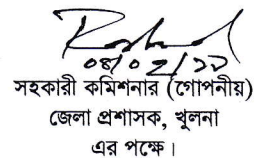 ০৪/০২/২২
সহকারী কমিশনার (গোপনীয়)
জেলা প্রশাসক, খুলনা
এর পক্ষে।